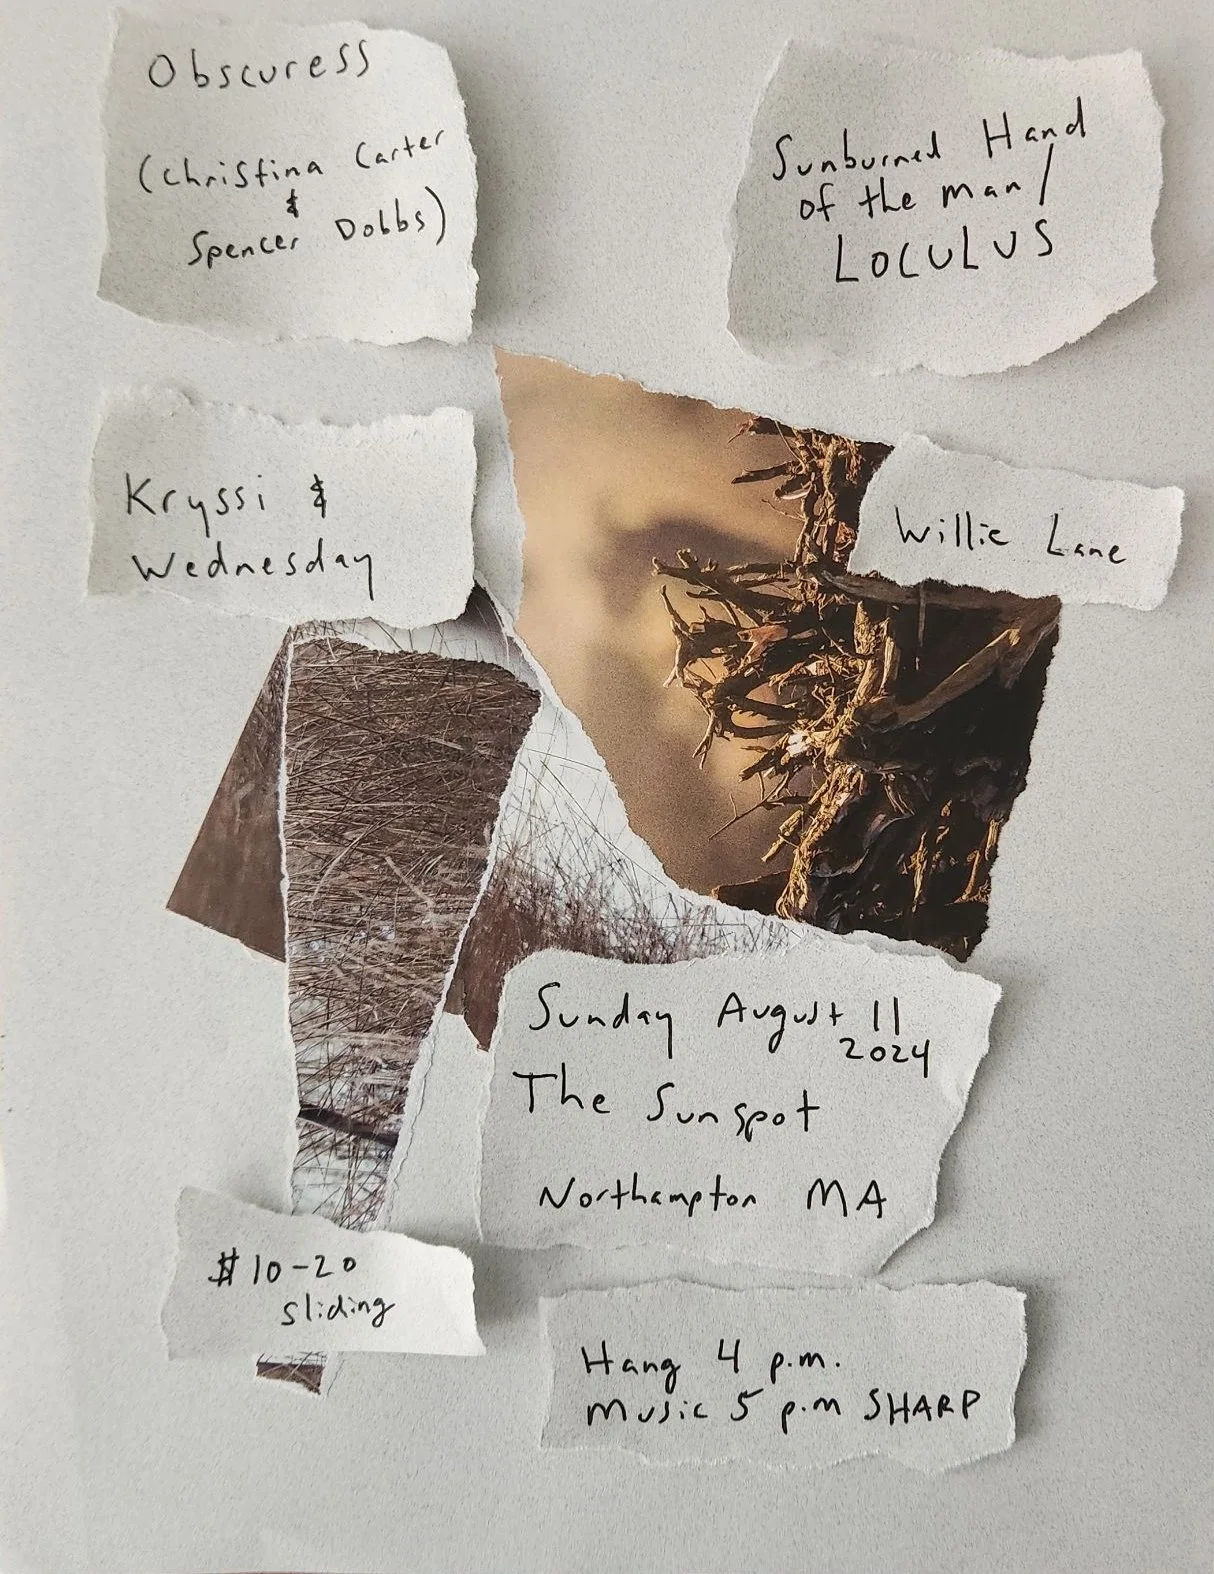 Obscuress
(Christina Carter
&
Spencer Dobbs)
Sunburned Hand
of the man/
LOCULUS
Kryssi &
Wednesday
Willie Lane
Sunday August 11
2024
The Sunspot
Northampton MA
$10-20
sliding
Hang 4 p.m.
Music 5 p.m SHARP